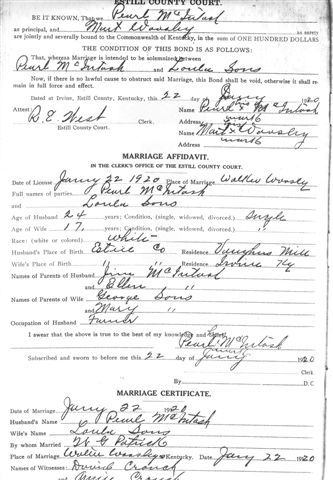 ESTILL COUNTY COURT.
BE IT KNOWN, That we Pearl McIntosh
as principal, and Mart Woosley as surety
are jointly and severally bound to the Commonwealth of Kentucky, in the sum of ONE HUNDRED DOLLARS
THE CONDITION OF THIS BOND IS AS FOLLOWS:
That, whereas Marriage is intended to be solemnized between
Pearl McIntosh and Loula Sons
Now, if there is no lawful cause to obstruct said Marriage, this Bond shall be void, otherwise it shall remain in full force and effect.
Dated at Irvine, Estill County, Kentucky, this 22 day of Jany 1920
Attest Name Pearl x McIntosh
mark
R. E. West Clerk. Name Mart x Woosley
Estill County Court. Address mark
MARRIAGE AFFIDAVIT.
IN THE CLERK'S OFFICE OF THE ESTILL COUNTY COURT.
Date of License Jany 22 1920 Place of Marriage Walker Woosley
Full names of parties Pearl McIntosh
and Loula Sons
Age of Husband 24 years; Condition, (single, widowed, divorced.) Single
Age of Wife 17 years; Condition, (single, widowed, divorced.)
Race: (white or colored.) White
Husband's Place of Birth Estill Co Residence Vaughns Mill
Wife's Place of Birth " " Residence Irvine Ky
Names of Parents of Husband Jim McIntosh
and Ellen "
Names of Parents of Wife George Sons
and Mary "
Occupation of Husband Farmer
I swear that the above is true to the best of my knowledge and
Pearl McIntosh
Subscribed and sworn to before me this 22 day of Jany 1920
Clerk
By D.C.
MARRIAGE CERTIFICATE.
Date of Marriage Jany 22 1920
Husband's Name Pearl McIntosh
Wife's Name Loula Sons
By whom Married W G Patrick
Place of Marriage Walker Woosley Kentucky. Date Jany 22 1920
Names of Witnesses: Crouch
and Crouch